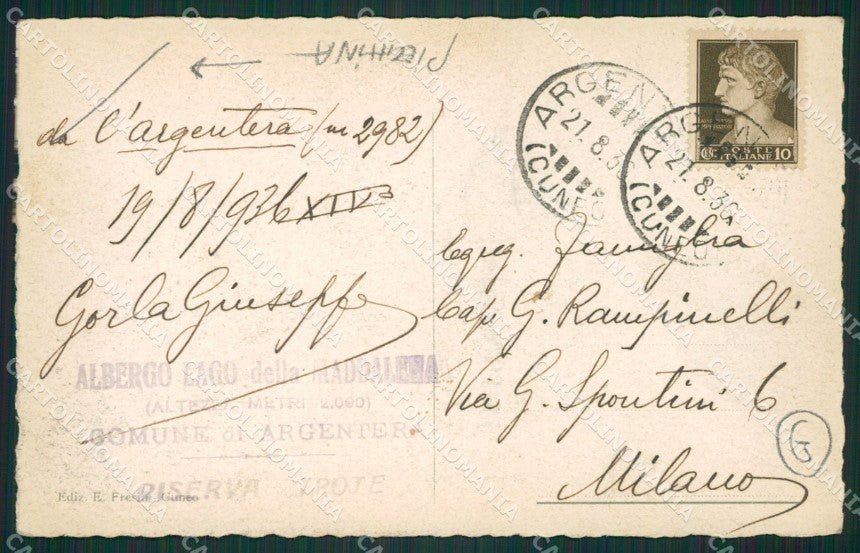 da l'argentera (m 2982)
19/8/936 XIV
Gorla Giuseppe
ALBERGO LAGO della MADDALENA
(ALTEZZA METRI 2.000)
COMUNE di ARGENTERA
RISERVA TROTE
Ediz. E. Fresia - Cuneo
ARGENTERA
21.8.36
(CUNEO)
ARGENTERA
21.8.36
(CUNEO)
POSTE
ITALIANE 10
Egreg. Famiglia
Cap. G. Rampinelli
Via G. Spontini 6
Milano
G
CARTOLINOMANIA